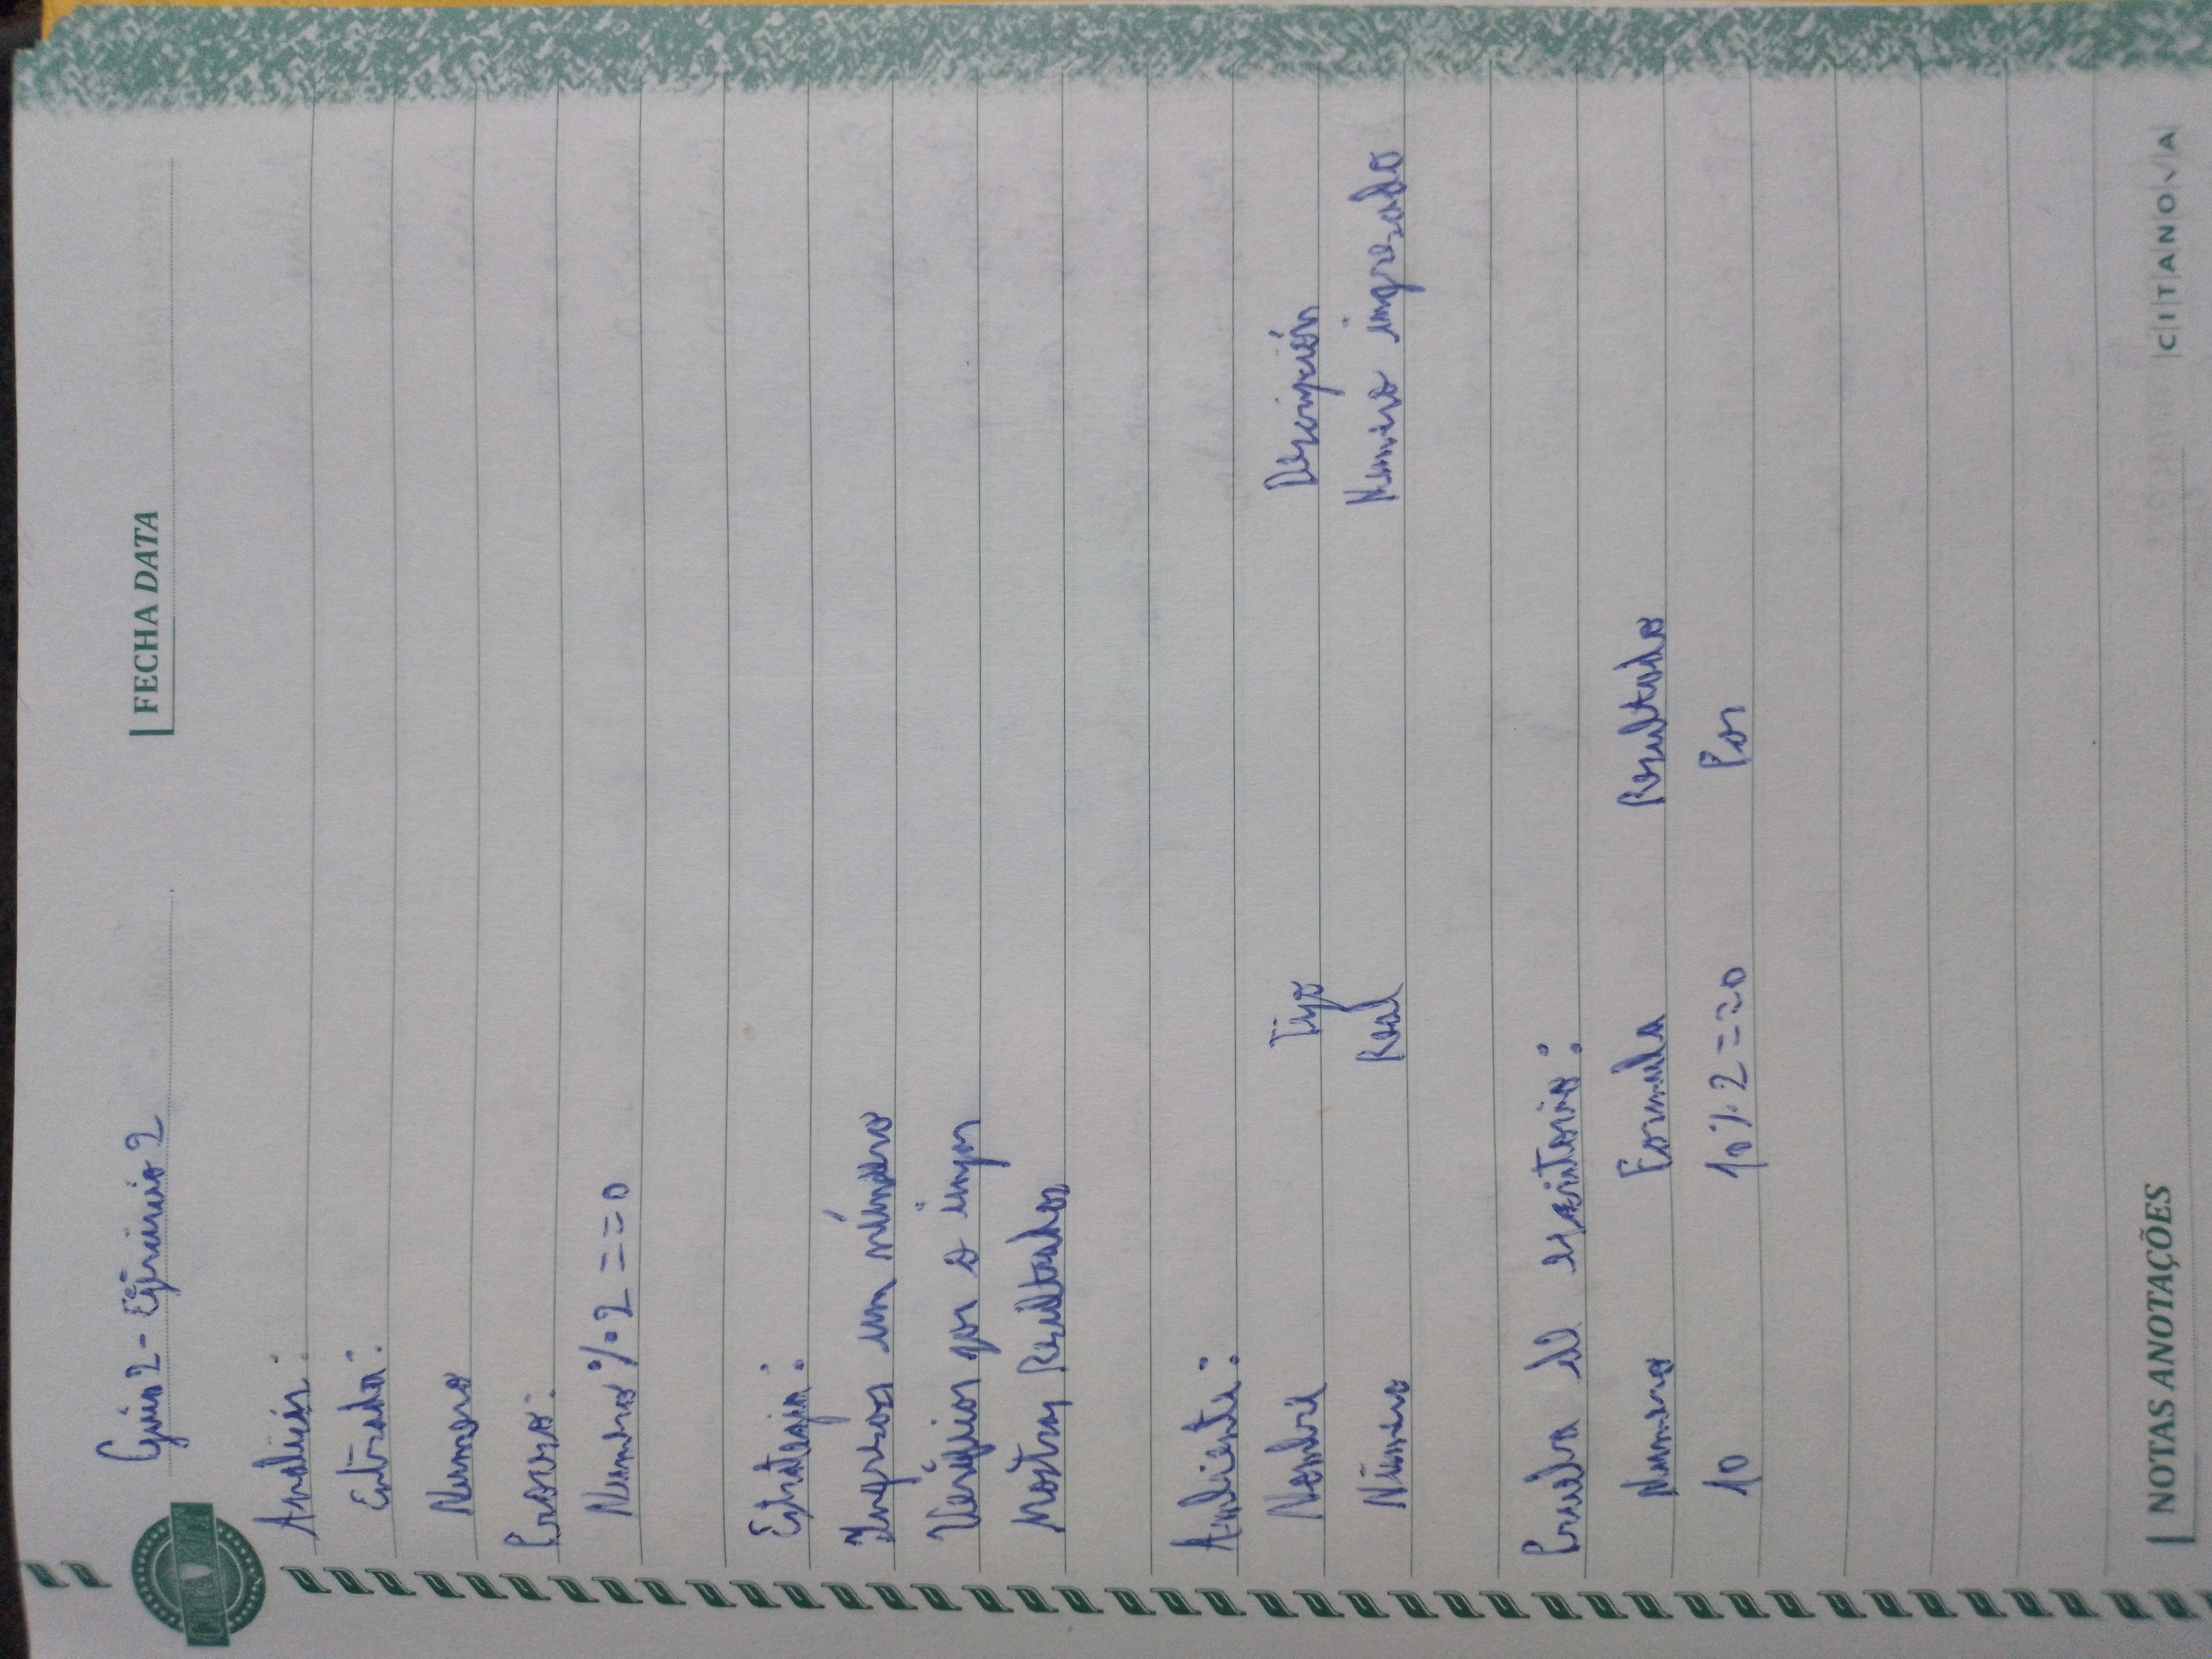 Guia 2 - Ejercicio 2
FECHA DATA
Analisis:
Entrada:
Numero
Proceso:
Numero % 2 == 0
Estrategia:
Ingresar un número
Verificar par o impar
Mostrar Resultados
Ambiente:
Nombre Tipo Descripción
Número Real Numero ingresado
Prueba de escritorio:
Numero Formula Resultado
10 10 % 2 == 0 Par
NOTAS ANOTAÇÕES
CITANOVA